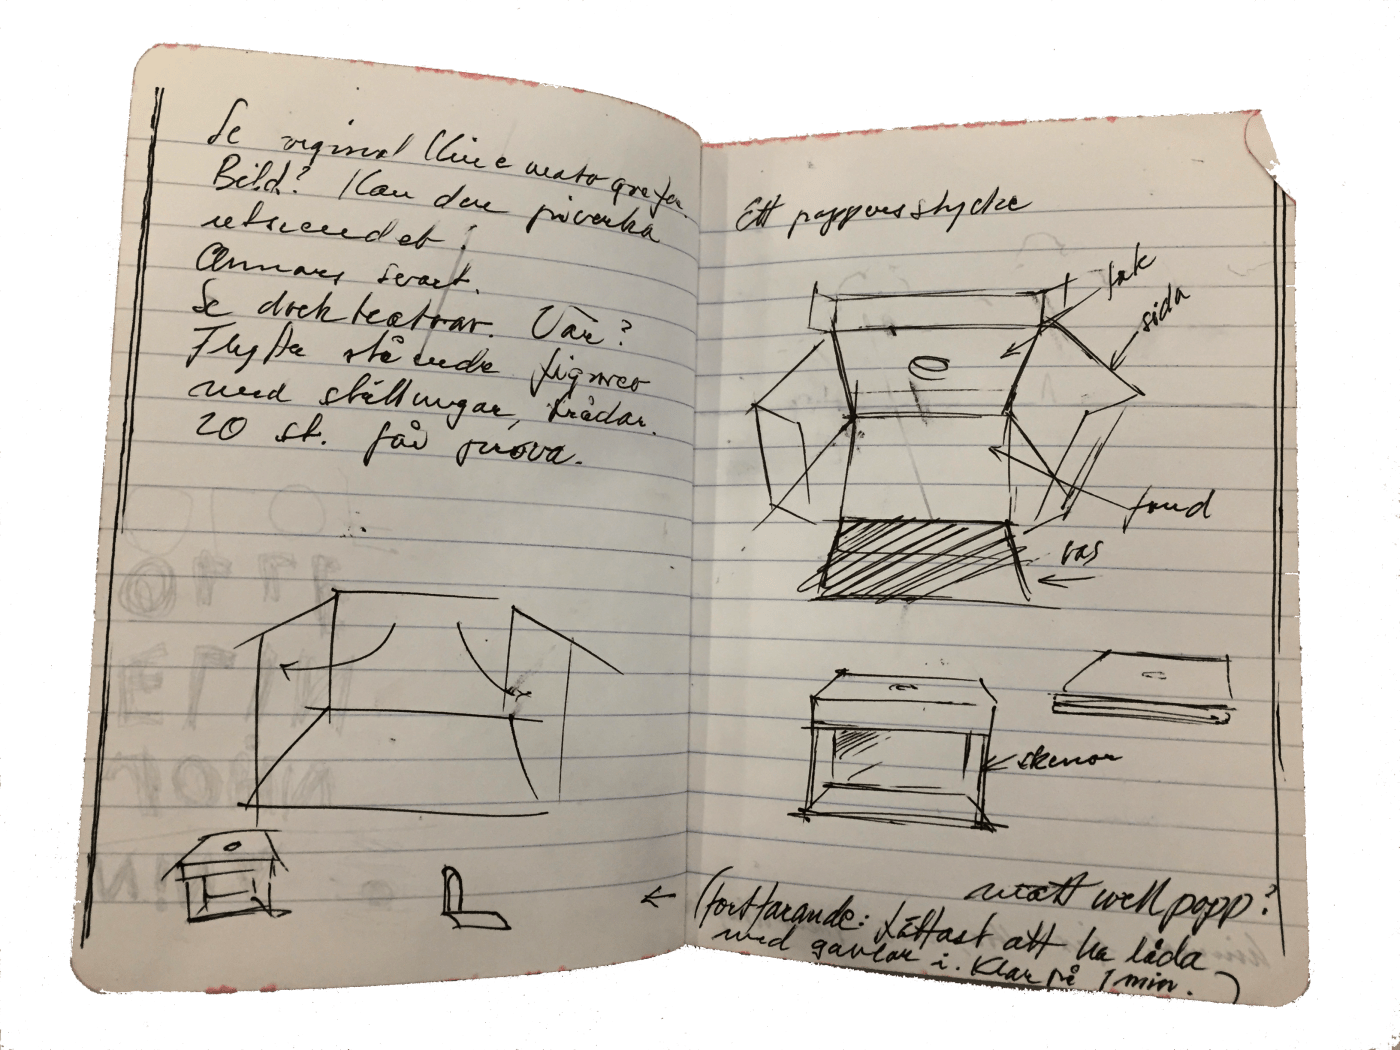 Se original Kinematografen.
Bild? Kan den påverka
utseendet?
Annars svart.
Se dockteatrar. Var?
Flytta stående figurer
med ställningar, trådar.
20 st. får prova.
Ett pappersstycke
tak
sida
fond
vas
skenor
wellpapp?
(fortfarande: Lättast att ha låda
med gavlar i. Klar på 1 min.)